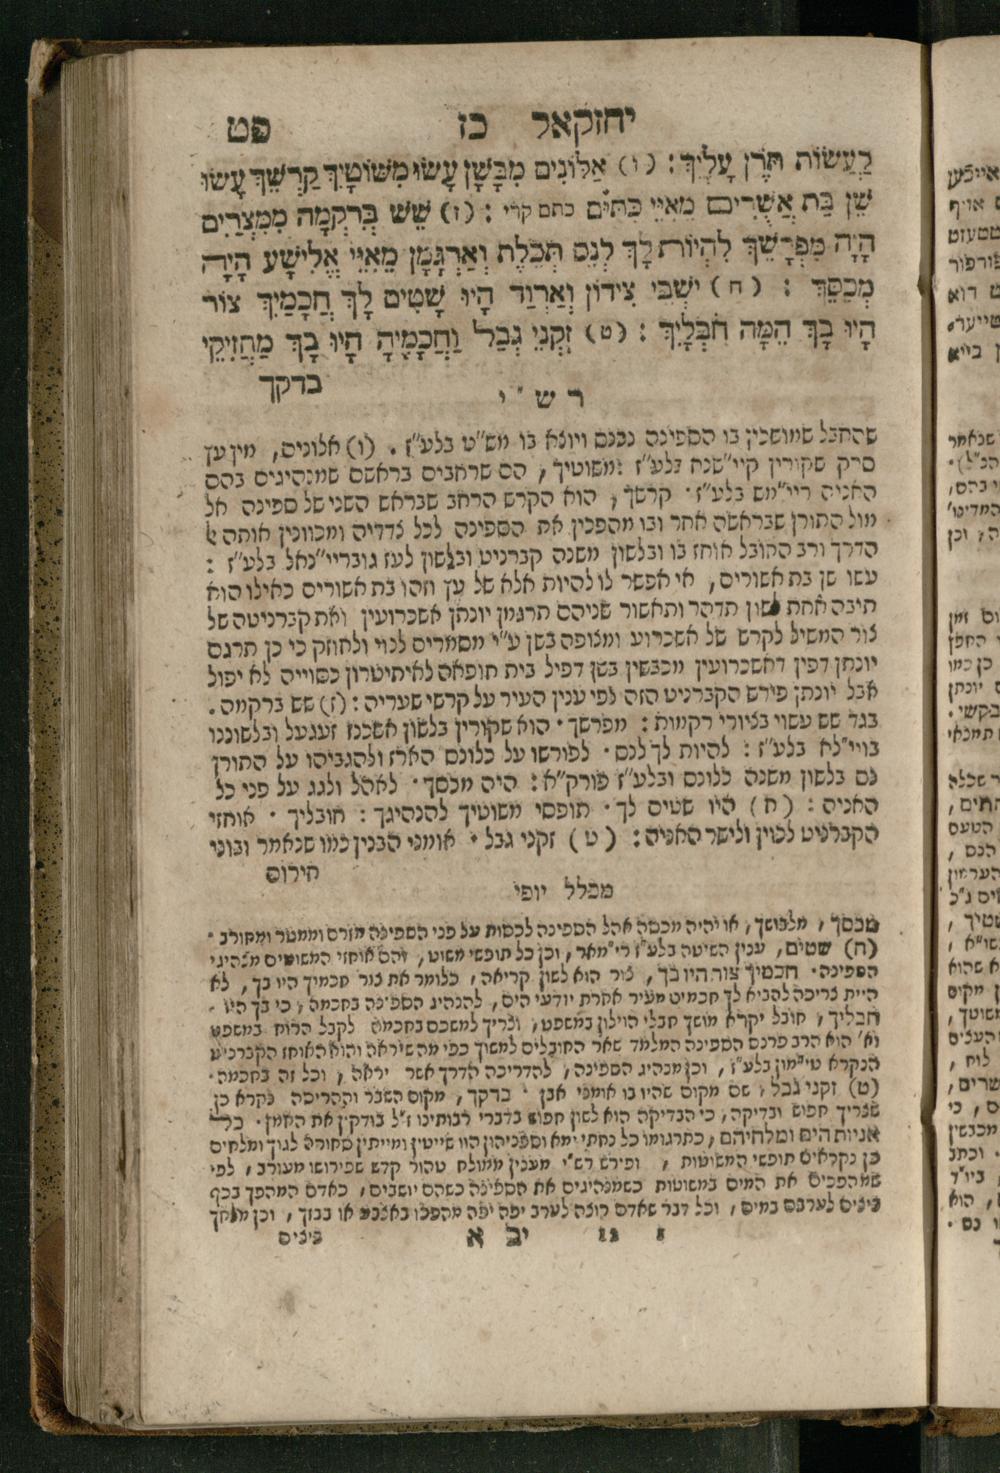 יחזקאל כז פט
לַעֲשׂוֹת תֹּרֶן עָלָיִךְ : (ו) אַלּוֹנִים מִבָּשָׁן עָשׂוּ מִשּׁוֹטָיִךְ קַרְשֵׁךְ עָשׂוּ
שֵׁן בַּת אֲשֻׁרִים מֵאִיֵּי כִּתִּיִּם כתם קרי : (ז) שֵׁשׁ בְּרִקְמָה מִמִּצְרַיִם
הָיָה מִפְרָשֵׂךְ לִהְיוֹת לָךְ לְנֵס תְּכֵלֶת וְאַרְגָּמָן מֵאִיֵּי אֱלִישָׁע הָיָה
מְכַסֵּךְ : (ח) יֹשְׁבֵי צִידוֹן וְאַרְוַד הָיוּ שָׁטִים לָךְ חֲכָמַיִךְ צוֹר
הָיוּ בָךְ הֵמָּה חֹבְלָיִךְ : (ט) זִקְנֵי גְבַל וַחֲכָמֶיהָ הָיוּ בָךְ מַחֲזִיקֵי
בדקך
רש"י
שהחבל שמושכין בו הספינה נכנס ויוצא בו מש"ט בלע"ז . (ו) אלונים, מין עץ
סרק שקורין קיי"שנה בלע"ז : משוטיך , הם שרחבים בראשם שמנהיגים בהם
האניה ריי"מש בלע"ז · קרשך , הוא הקרש הרחב שבראש השני של ספינה אל
מול התורן שבראשה אחר ובו מהפכין את הספינה לכל צדדיה ומכוונין אותה
הדרך ורב החובל אוחז בו ובלשון משנה קברניט ובלשון לעז גובריי"נאל בלע"ז :
עשו שן בת אשורים, אי אפשר לו להיות אלא של עץ וזהו בת אשורים כאילו הוא
תיבה אחת לשון תדהר ותאשור שניהם תרגמן יונתן אשכרועין ואת קברניטה של
צור המשיל לקרש של אשכרוע ומצופה בשן ע"י מסמרים לנוי ולחוזק כי כן תרגם
יונתן דפין דאשכרועין מכבשין בשן דפיל בית חופאה לאיתיטרון כסוייה לא יפול
אבל יונתן פירש הקברניט הזה לפי ענין העיר על קרשי שעריה : (ז) שש ברקמה .
בגד שש עשוי בציורי רקמות : מפרשך · הוא שקורין בלשון אשכנז זעגעל ובלשוננו
בויי"לא בלע"ז : להיות לך לנס · לפורשו על כלונס הארז ולהגביהו על התורן
נס בלשון משנה כלונס ובלע"ז פורק"א : היה מכסך · לאהל ולגג על פני כל
האניה : (ח) היו שטים לך · תופסי משוטיך להנהיגך : חובליך · אוחזי
הקברניט לכוין ולישר האניה : (ט) זקני גבל · אומני הבנין כמו שנאמר ובוני
חירום
מכלל יופי
מכסך , מלבושך, או יהיה מכסה אהל הספינה לכסות על פני הספינה מזרם וממטר ומחורב ·
(ח) שטים, ענין השיטה בלע"ז רי"מאר, וכן כל תופשי משוט, והם אוחזי המשוטים מנהיגי
הספינה · חכמיך צור היו בך, צור הוא לשון קריאה, כלומר את צור חכמיך היו בך, לא
היית צריכה להביא לך חכמים מעיר אחרת יודעי הים, להנהיג הספינה בחכמה , כי בך היו ·
חבליך , חובל יקרא מושך חבלי הוילון במשפט, וצריך למשכם בחכמה לקבל הרוח במשפט
וא' הוא הרב פרנס הספינה המלמד שאר החובלים למשוך כפי מה שיראה והוא האוחז הקברניט
הנקרא טי"מון בלע"ז, וכן מנהיג הספינה, להדריכה הדרך אשר יראה , וכל זה בחכמה ·
(ט) זקני גבל , שם מקום שהיו בו אומני אבן · בדקך, מקום השבר וההריסה נקרא כן
שצריך חפוש ובדיקה, כי הבדיקה הוא לשון חפוש בדברי רבותינו ז"ל בודקין את החמץ · כל
אניות הים ומלחיהם , כתרגומו כל נחתי ימא וספניהון הוו שייטין ומייתין סחורה לגוך ומלחים
כן נקראים תופשי המשוטות , ופירש רש"י מענין ממולח טהור קדש שפירושו מעורב , לפי
שמהפכים את המים במשוטות כשמנהיגים את הספינה כשהם יושבים , כאדם המהפך בכף
ביצים לערבם במים , וכל דבר שאדם רוצה לערב יפה יפה מהפכו באצבע או בבזך , וכן מלחך
יב א ביצים